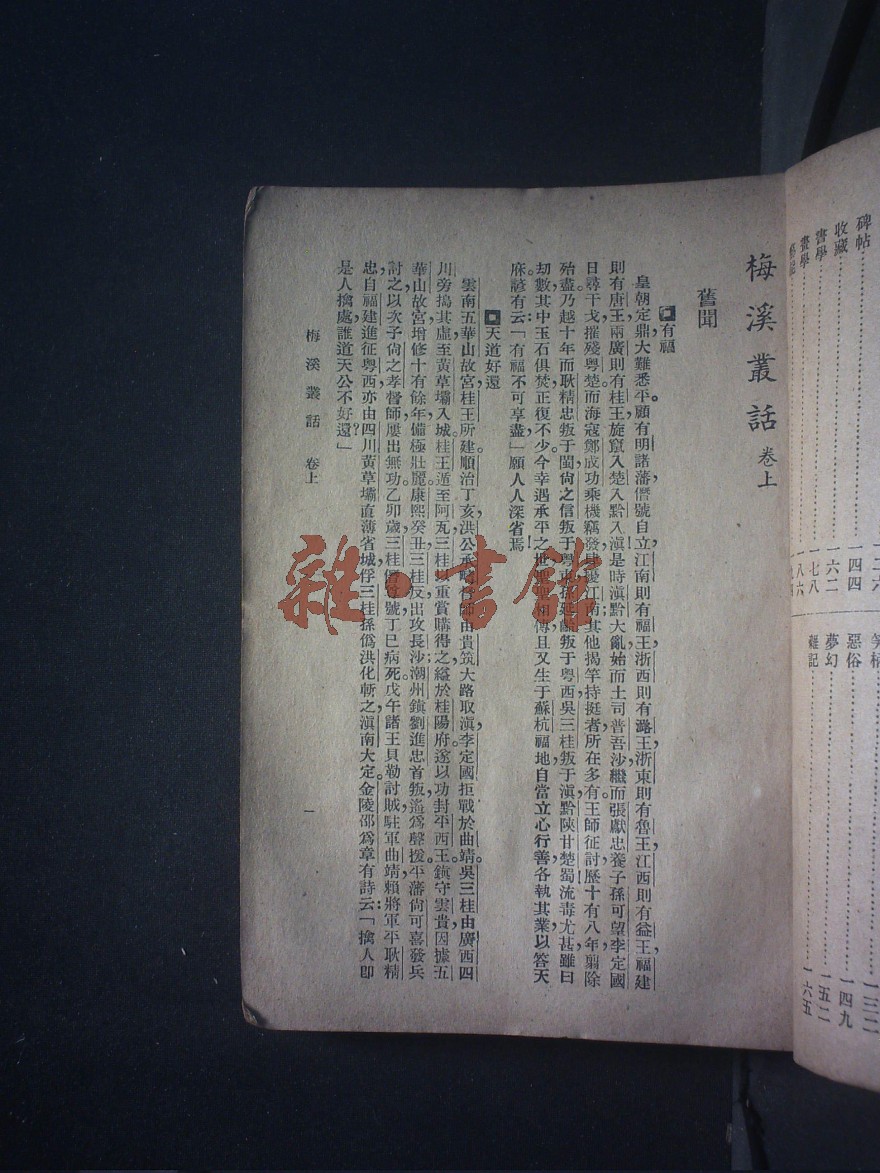 碑帖……一三六
收藏……一四四
書學……一六二
畫學……一七八
八六
一三二
惡俗……一四九
夢幻……一五二
雜記……一六五
梅溪叢話 卷上
舊聞
有福
皇朝定鼎大難悉平。顧有明諸藩僭號自立江南則有福王浙西則有潞王浙東則有魯王江西則有益王福建
則有唐王兩廣則有桂王旋竄入楚入黔入滇是時滇黔大亂始而土司普吾沙繼而張獻忠養子孫可望李定國
日尋干戈摧殘粵楚。而海寇鄭成功乘機竊發肆擾江南其他揭竿持挺者所在多有。王師征討歷十有八年翦除
殆盡乃越十年而耿精忠叛于閩尚之信叛于粵東孫延齡叛于粵西吳三桂叛于滇黔陝甘楚蜀流毒尤甚雖曰
劫數其中玉石俱焚正復不少。今幸遇承平之世且又生于蘇杭福地自當立心行善各執其業以答天
庥。諺有云：「有福不可享盡」願人人深省焉！
天道好還
雲南五華山故宮桂王所建。順治丁亥洪公承疇督師由貴筑大路取滇李定國拒戰於曲靖。吳三桂由廣西四
川旁搗其虛至黃草壩入城桂王遁至阿瓦三桂以重賞購得之縊於桂陽府。遂以功封平西王鎮守雲貴因據五
華山故宮增修十有餘年備極壯麗。康熙癸丑三桂反出攻長沙潮州鎮劉進忠首叛遙爲聲援。平藩尚可喜發兵
討之以次子尚之孝督師屢出無功。乙卯歲三桂僭首號丁巳病死。戊午諸王貝勒討賊駐軍曲靖賴將軍平耿精
忠自福建進征粵西亦由四川黃草壩直薄省城俘三桂孫僞洪化斬之滇南大定。金陵邵爲章有詩云：「擒人卽
是人擒處誰道天公不好還？」
梅溪叢話 卷上
一
雜·書館